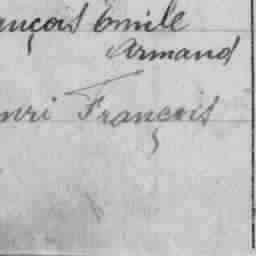 ançois Emile
Armand
nri François